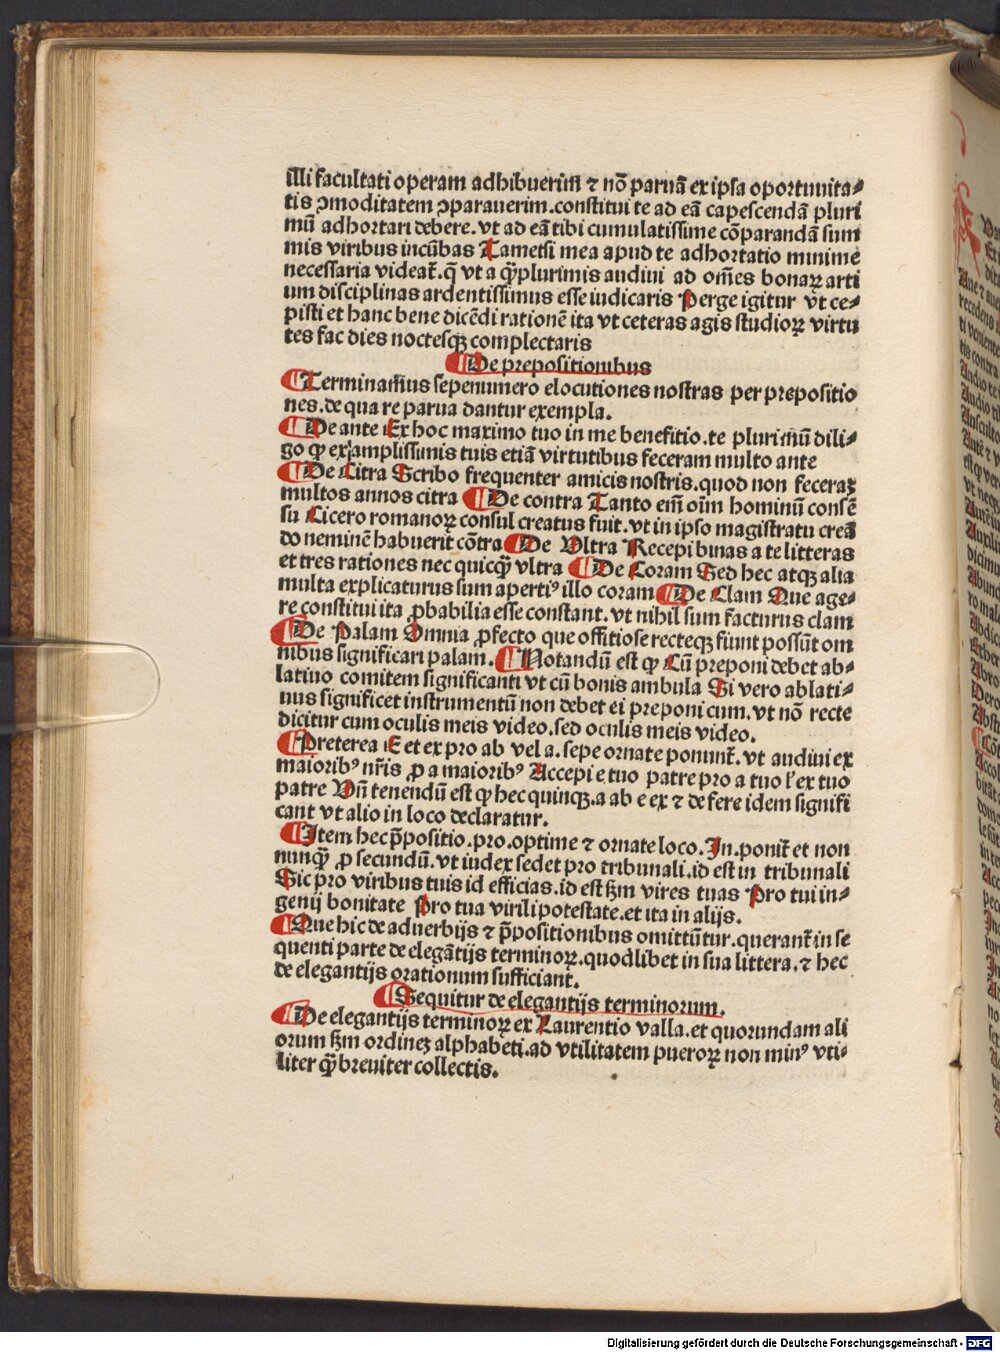 illi facultati operam adhibuerim ⁊ nō paruā ex ipsa oportunita⸗
tis ↄmoditatem ↄparauerim.constitui te ad eā capescendā pluri
mū adhortari debere.vt ad eā tibi cumulatissime cōparandā sum
mis viribus incūbas Tametsi mea apud te adhortatio minime
necessaria videat̄.q̄ vt a q̄ꝫplurimis audiui ad om̄es bonaꝝ arti
um disciplinas ardentissimus esse iudicaris Perge igitur vt ce⸗
pisti et hanc bene dicēdi rationē ita vt ceteras agis studioꝝ virtu
tes fac dies noctesqꝫ complectaris
¶De prepositionibus
¶Terminamus sepenumero elocutiones nostras per prepositio
nes.de qua re parua dantur exempla.
¶De ante Ex hoc maximo tuo in me benefitio.te plurimū dili⸗
go ꝙ ex amplissimis tuis etiā virtutibus feceram multo ante
¶De Citra Scribo frequenter amicis nostris.quod non feceraꝫ
multos annos citra ¶De contra Tanto em̄ oīm hominū consē
su Cicero romanoꝝ consul creatus fuit.vt in ipso magistratu crea
do neminē habuerit cōtra ¶De Vltra Recepi binas a te litteras
et tres rationes nec quicq̄ꝫ vltra ¶De Coram Sed hec atqꝫ alia
multa explicaturus sum apertiꝰ illo coram ¶De Clam Que age⸗
re constitui ita ꝓbabilia esse constant.vt nihil sum facturus clam
¶De Palam Omnia ꝓfecto que offitiose recteqꝫ fiunt possūt om
nibus significari palam. ¶Notandū est ꝙ Cū preponi debet ab⸗
latiuo comitem significanti vt cū bonis ambula Si vero ablati⸗
nus significet instrumentū non debet ei preponi cum.vt nō recte
dicitur cum oculis meis video.sed oculis meis video.
¶Preterea E et ex pro ab vel a.sepe ornate ponunt̄.vt audiui ex
maioribꝰ nr̄is ꝓ a maioribꝰ Accepi e tuo patre pro a tuo ł ex tuo
patre Vn̄ tenendū est ꝙ hec quinqꝫ.a ab e ex ⁊ de fere idem signifi
cant vt alio in loco declaratur.
¶Item hec p̄positio.pro.optime ⁊ ornate loco.In.ponit̄ et non
nunq̄ꝫ ꝓ secundū.vt iudex sedet pro tribunali.id est in tribunali
Sic pro viribus tuis id efficias.id est ẜm vires tuas Pro tui in⸗
genij bonitate Pro tua virili potestate.et ita in alijs.
¶Que hic de aduerbijs ⁊ p̄positionibus omittūtur.querant̄ in se
quenti parte de elegātijs terminoꝝ.quodlibet in sua littera.⁊ hec
de elegantijs orationum sufficiant.
¶Sequitur de elegantijs terminorum.
¶De elegantijs terminoꝝ ex Laurentio valla.et quorundam ali
orum ẜm ordineꝫ alphabeti.ad vtilitatem pueroꝝ non minꝰ vti⸗
liter q̄ꝫ breuiter collectis.
Digitalisierung gefördert durch die Deutsche Forschungsgemeinschaft - DFG